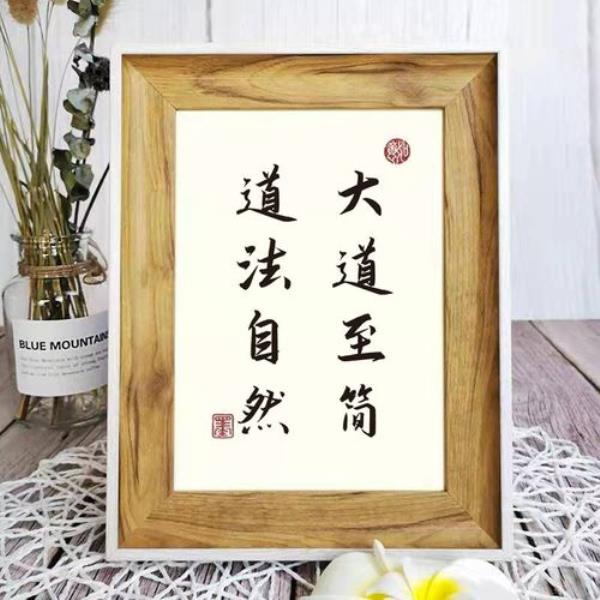 大道至简
道法自然
BLUE MOUNTAINS